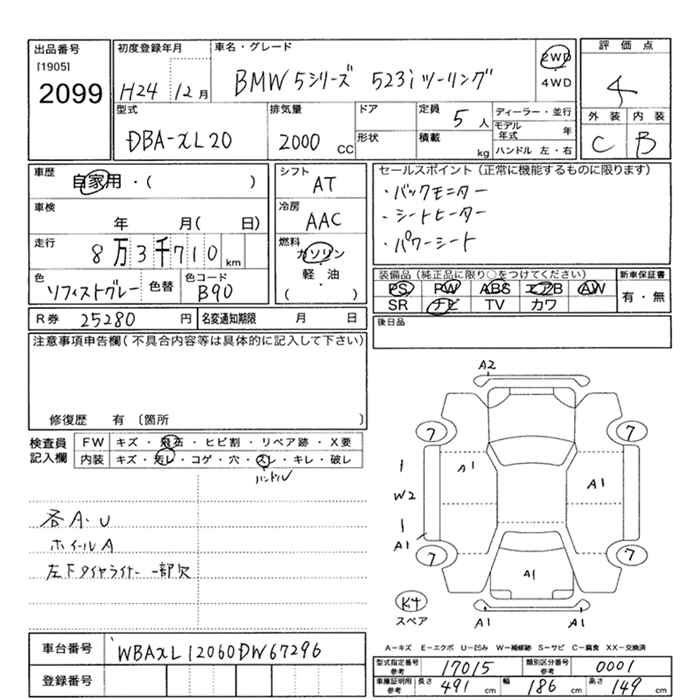 出品番号
[1905]
2099
初度登録年月
H24 12月
車名・グレード
BMW 5シリーズ 523i ツーリング
2WD
4WD
評価点
4
外装 内装
C B
型式
DBA-XL20
排気量
2000 CC
ドア
形状
定員 5 人
積載 kg
ディーラー・並行
モデル年式 年
ハンドル 左・右
車歴
自家用・( )
車検
年 月( 日)
走行
8万3千710 km
色
ソフィストグレー
色替
色コード
B90
シフト
AT
冷房
AAC
燃料
ガソリン
軽・油
( )
セールスポイント(正常に機能するものに限ります)
・バックモニター
・シートヒーター
・パワーシート
装備品(純正品に限り○をつけてください)
PS PW ABS エアB AW
SR ナビ TV カワ
新車保証書
有・無
R券 25280 円
名変通知期限 月 日
後日品
注意事項申告欄(不具合内容等は具体的に記入して下さい)
修復歴 有〔箇所 〕
検査員記入欄
FW キズ・飛石・ヒビ割・リペア跡・X要
内装 キズ・汚レ・コゲ・穴・スレ・キレ・破レ
ハンドル
各A・U
ホイールA
左下タイヤライナー 一部欠
A2
7 7
A1 A1
W2
A1
7 7
A1
K4
スペア
A1 A1
A-キズ E-エクボ U-凹み W-補修跡 S-サビ C-腐食 XX-交換済
車台番号
WBAXL12060DW67296
登録番号
型式指定番号 参考 17015
類別区分番号 参考 0001
車庫証明用 参考 長さ 491 cm 幅 186 cm 高さ 149 cm